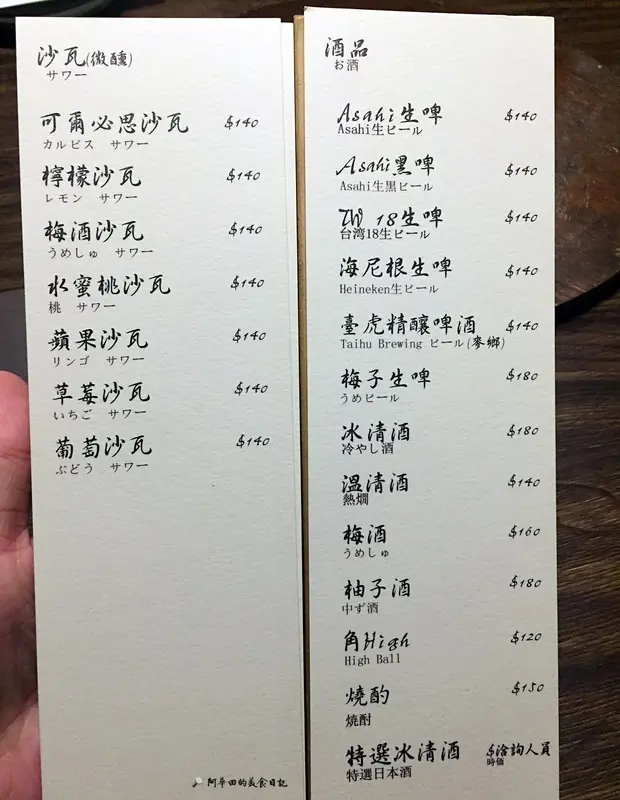 沙瓦(微醺)
サワー
可爾必思沙瓦 $140
カルピス サワー
檸檬沙瓦 $140
レモン サワー
梅酒沙瓦 $140
うめしゅ サワー
水蜜桃沙瓦 $140
桃 サワー
蘋果沙瓦 $140
リンゴ サワー
草莓沙瓦 $140
いちご サワー
葡萄沙瓦 $140
ぶどう サワー
阿華田的美食日記
酒品
お酒
Asahi生啤 $140
Asahi生ビール
Asahi黑啤 $140
Asahi生黒ビール
TW 18生啤 $140
台湾18生ビール
海尼根生啤 $140
Heineken生ビール
臺虎精釀啤酒 $140
Taihu Brewing ビール(麥鄉)
梅子生啤 $180
うめビール
冰清酒 $180
冷やし酒
溫清酒 $140
熱燗
梅酒 $160
うめしゅ
柚子酒 $180
中ず酒
角High $120
High Ball
燒酌 $150
焼酎
特選冰清酒 $洽詢人員
特選日本酒 時価